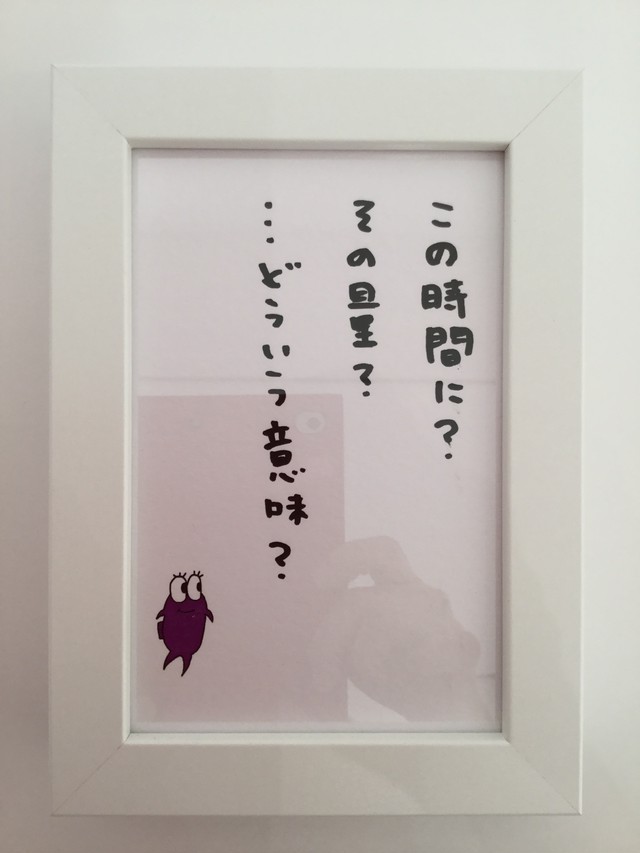 この時間に?
その量?
…どういう意味?